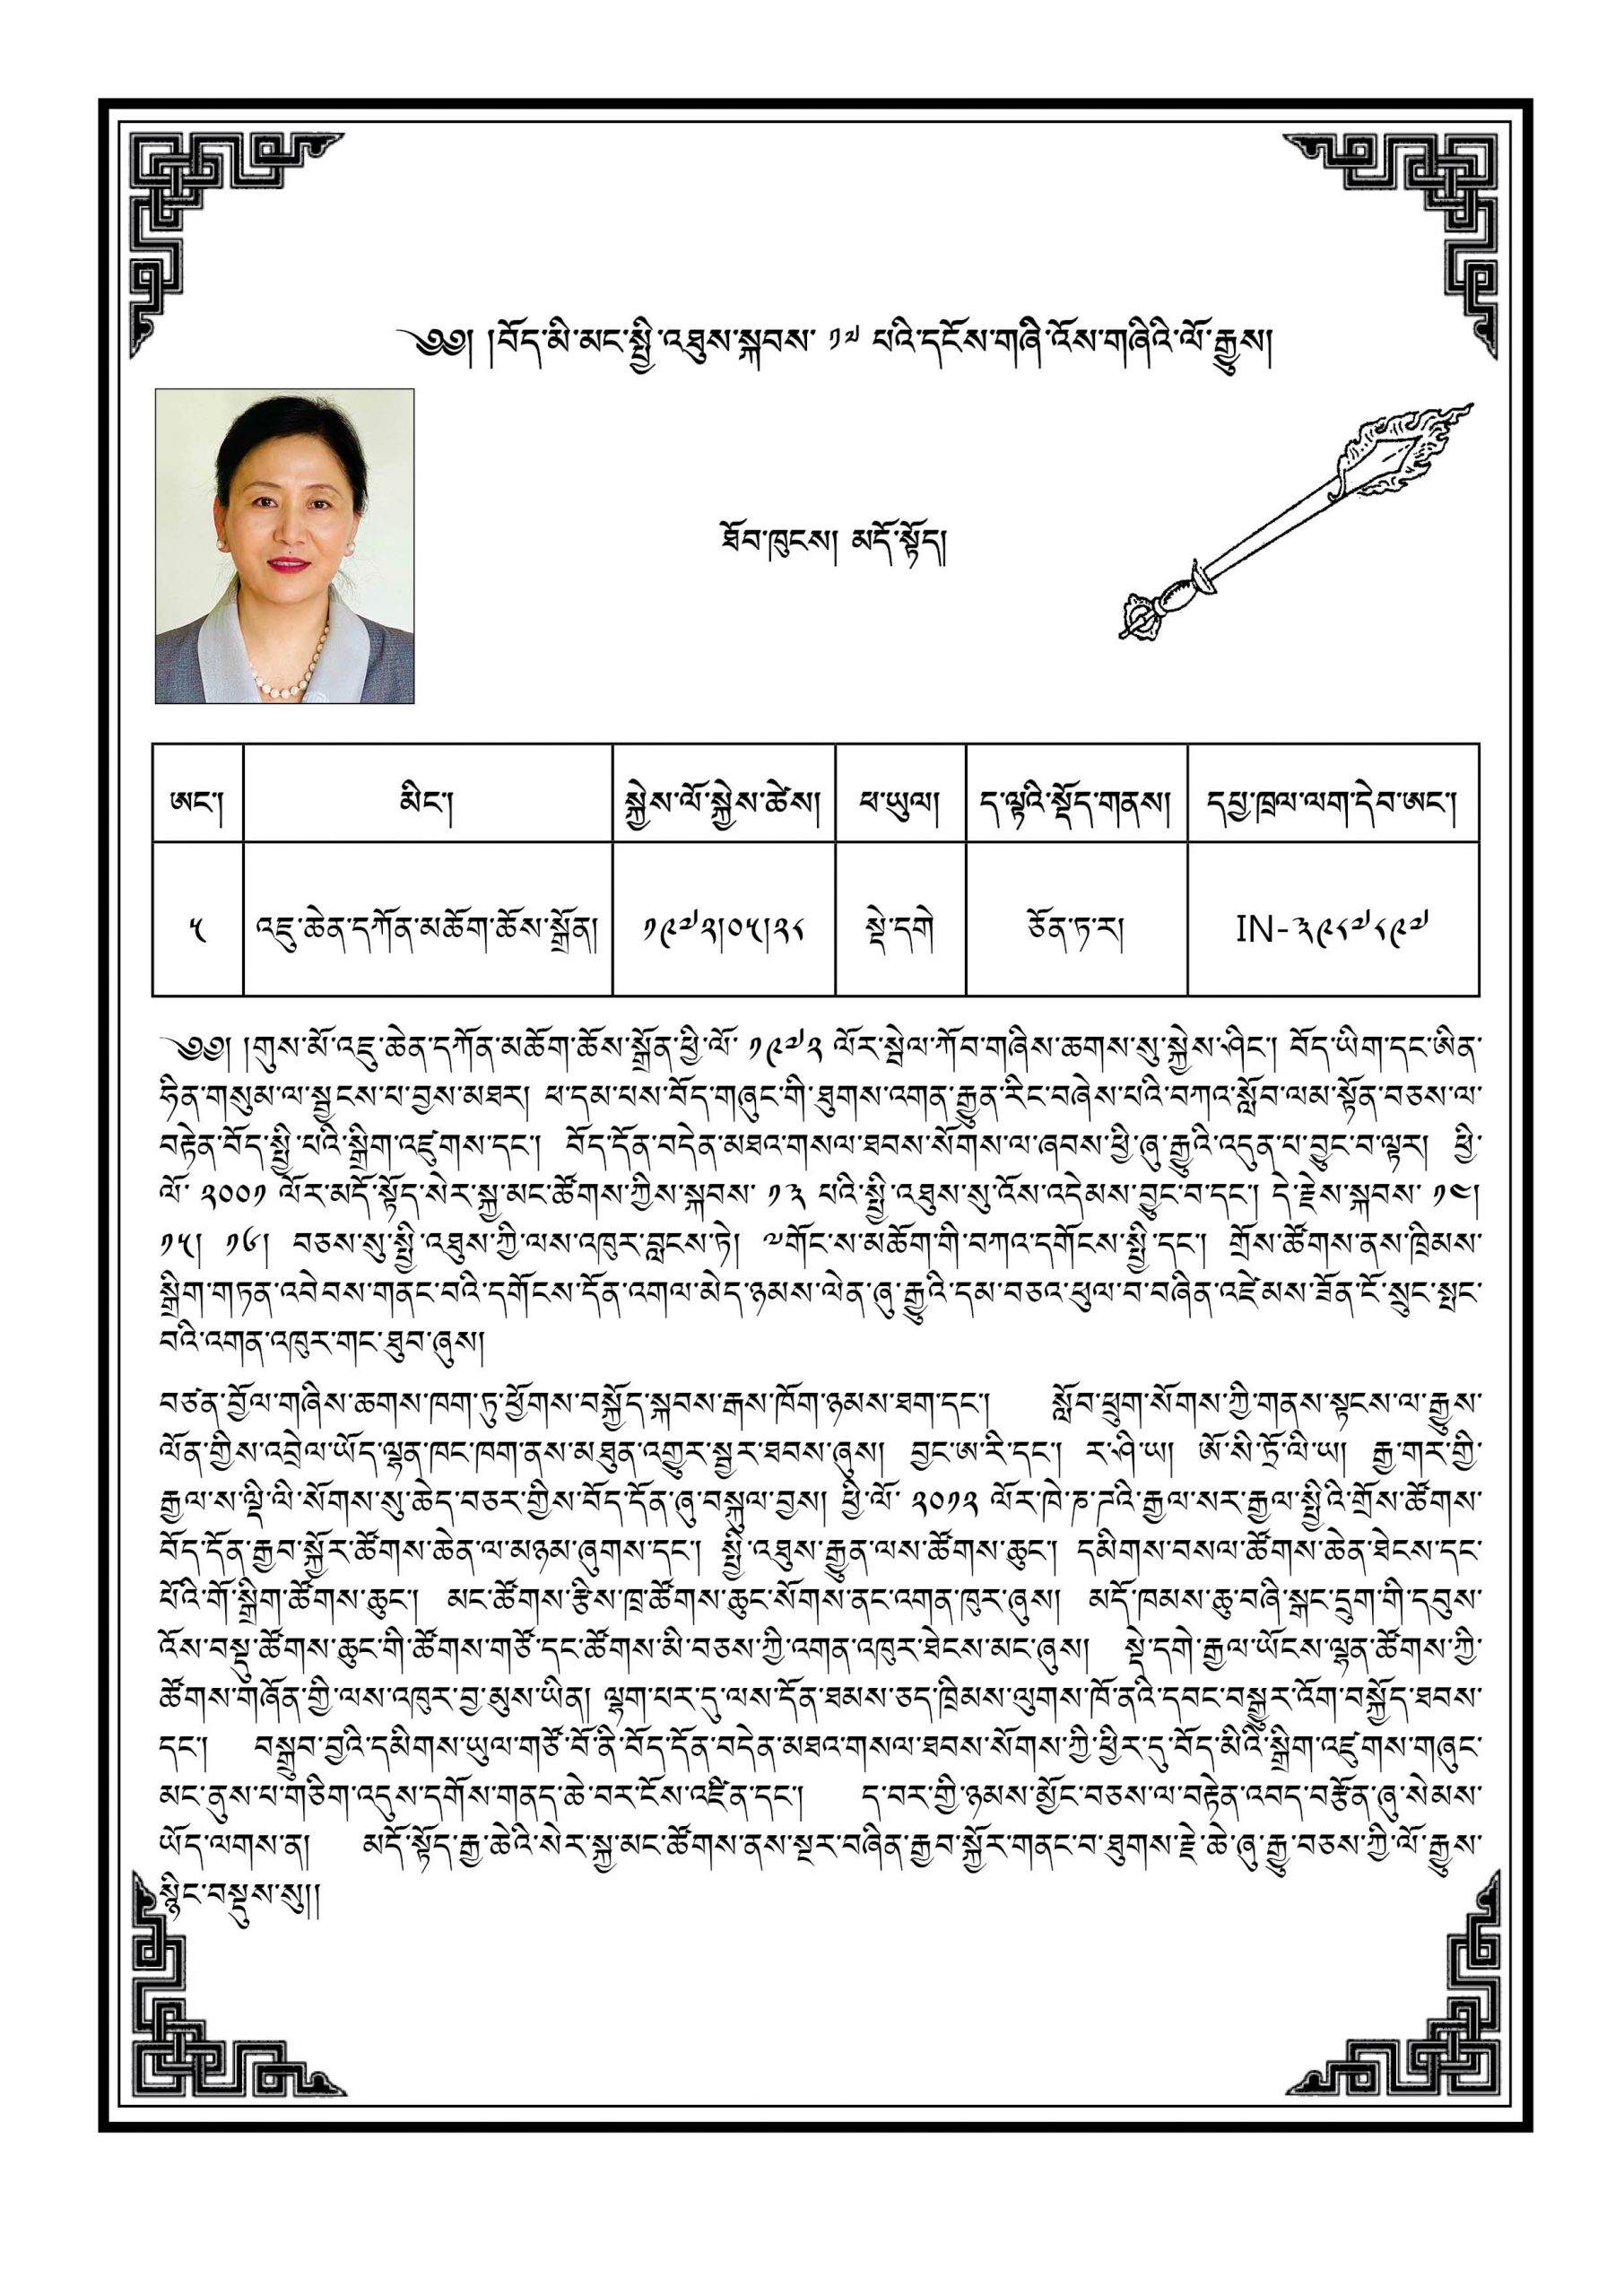 ༄༅། །བོད་མི་མང་སྤྱི་འཐུས་སྐབས་ ༡༧ པའི་དངོས་གཞི་འོས་གཞིའི་ལོ་རྒྱུས།
ཐོབ་ཁུངས། མདོ་སྟོད།
ཨང་། མིང་། སྐྱེས་ལོ་སྐྱེས་ཚེས། ཕ་ཡུལ། ད་ལྟའི་སྡོད་གནས། དཔྱ་ཁྲལ་ལག་དེབ་ཨང་།
༥ འཇུ་ཆེན་དཀོན་མཆོག་ཆོས་སྒྲོན། ༡༩༧༢།༠༥།༢༨ སྡེ་དགེ ཅོན་ཏ་ར། IN-༣༩༨༧༨༩༧
༄༅། །གུས་མོ་འཇུ་ཆེན་དཀོན་མཆོག་ཆོས་སྒྲོན་ཕྱི་ལོ་ ༡༩༧༢ ལོར་སྦེལ་ཀོབ་གཞིས་ཆགས་སུ་སྐྱེས་ཤིང་། བོད་ཡིག་དང་ཨིན་
ཧིན་གསུམ་ལ་སྦྱངས་པ་བྱས་མཐར། ཕ་དམ་པས་བོད་གཞུང་གི་ཐུགས་འགན་རྒྱུན་རིང་བཞེས་པའི་བཀའ་སློབ་ལམ་སྟོན་བཅས་ལ་
བརྟེན་བོད་སྤྱི་པའི་སྒྲིག་འཛུགས་དང་། བོད་དོན་བདེན་མཐའ་གསལ་ཐབས་སོགས་ལ་ཞབས་ཕྱི་ཞུ་རྒྱུའི་འདུན་པ་བྱུང་བ་ལྟར། ཕྱི་
ལོ་ ༢༠༠༡ ལོར་མདོ་སྟོད་སེར་སྐྱ་མང་ཚོགས་ཀྱིས་སྐབས་ ༡༣ པའི་སྤྱི་འཐུས་སུ་འོས་འདེམས་བྱུང་བ་དང་། དེ་རྗེས་སྐབས་ ༡༤།
༡༥། ༡༦། བཅས་སུ་སྤྱི་འཐུས་ཀྱི་ལས་འཁུར་བླངས་ཏེ། ༸གོང་ས་མཆོག་གི་བཀའ་དགོངས་སྤྱི་དང་། གྲོས་ཚོགས་ནས་ཁྲིམས་
སྒྲིག་གཏན་འབེབས་གནང་བའི་དགོངས་དོན་འགལ་མེད་ཉམས་ལེན་ཞུ་རྒྱུའི་དམ་བཅའ་ཕུལ་བ་བཞིན་འཛེམས་ཟོན་ངོ་སྲུང་སྤང་
བའི་འགན་འཁུར་གང་ཐུབ་ཞུས།
བཙན་བྱོལ་གཞིས་ཆགས་ཁག་ཏུ་ཕྱོགས་བསྐྱོད་སྐབས་རྒས་ཁོག་ཉམས་ཐག་དང་། སློབ་ཕྲུག་སོགས་ཀྱི་གནས་སྟངས་ལ་རྒྱུས་
ལོན་གྱིས་འབྲེལ་ཡོད་ལྷན་ཁང་ཁག་ནས་མཐུན་འགྱུར་སྦྱར་ཐབས་ཞུས། བྱང་ཨ་རི་དང་། ར་ཤི་ཡ། ཨོ་སི་ཊྲོ་ལི་ཡ། རྒྱ་གར་གྱི་
རྒྱལ་ས་ལྡི་ལི་སོགས་སུ་ཆེད་བཅར་གྱིས་བོད་དོན་ཞུ་བསྐུལ་བྱས། ཕྱི་ལོ་ ༢༠༡༢ ལོར་ཁེ་ཎ་ཌའི་རྒྱལ་སར་རྒྱལ་སྤྱིའི་གྲོས་ཚོགས་
བོད་དོན་རྒྱབ་སྐྱོར་ཚོགས་ཆེན་ལ་མཉམ་ཞུགས་དང་། སྤྱི་འཐུས་རྒྱུན་ལས་ཚོགས་ཆུང་། དམིགས་བསལ་ཚོགས་ཆེན་ཐེངས་དང་
པོའི་གོ་སྒྲིག་ཚོགས་ཆུང་། མང་ཚོགས་རྩིས་ཁྲ་ཚོགས་ཆུང་སོགས་ནང་འགན་ཁུར་ཞུས། མདོ་ཁམས་ཆུ་བཞི་སྒང་དྲུག་གི་དབུས་
འོས་བསྡུ་ཚོགས་ཆུང་གི་ཚོགས་གཙོ་དང་ཚོགས་མི་བཅས་ཀྱི་འགན་འཁུར་ཐེངས་མང་ཞུས། སྡེ་དགེ་རྒྱལ་ཡོངས་ལྷན་ཚོགས་ཀྱི་
ཚོགས་གཞོན་གྱི་ལས་འཁུར་བྱ་མུས་ཡིན། ལྷག་པར་དུ་ལས་དོན་ཐམས་ཅད་ཁྲིམས་ལུགས་ཁོ་ནའི་དབང་བསྒྱུར་འོག་བསྐྱོད་ཐབས་
དང་། བསྒྲུབ་བྱའི་དམིགས་ཡུལ་གཙོ་བོ་ནི་བོད་དོན་བདེན་མཐའ་གསལ་ཐབས་སོགས་ཀྱི་ཕྱིར་དུ་བོད་མིའི་སྒྲིག་འཛུགས་གཞུང་
མང་ནུས་པ་གཅིག་འདུས་དགོས་གནད་ཆེ་བར་ངོས་འཛིན་དང་། ད་བར་གྱི་ཉམས་མྱོང་བཅས་ལ་བརྟེན་འབད་བརྩོན་ཞུ་སེམས་
ཡོད་ལགས་ན། མདོ་སྟོད་རྒྱ་ཆེའི་སེར་སྐྱ་མང་ཚོགས་ནས་སྔར་བཞིན་རྒྱབ་སྐྱོར་གནང་བ་ཐུགས་རྗེ་ཆེ་ཞུ་རྒྱུ་བཅས་ཀྱི་ལོ་རྒྱུས་
སྙིང་བསྡུས་སུ།།